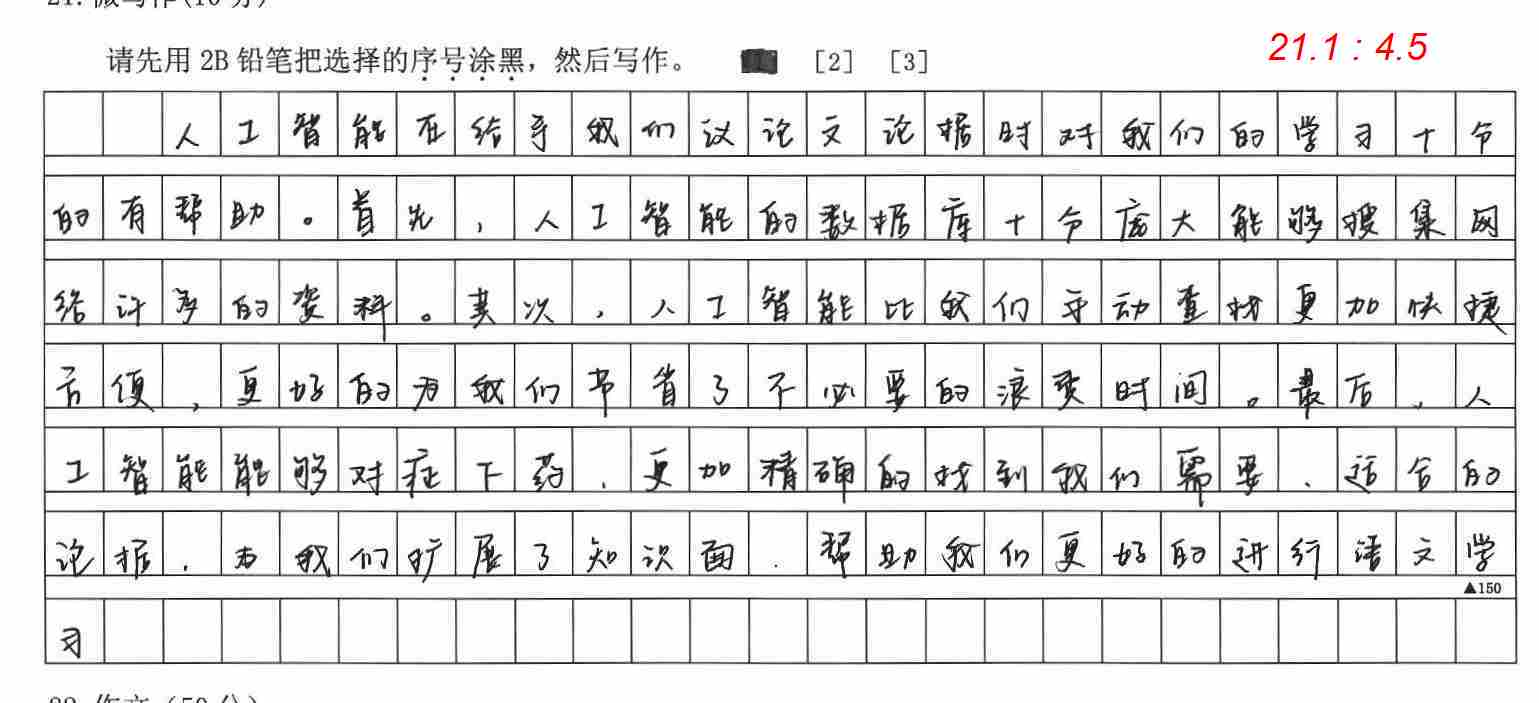 请先用 2B 铅笔把选择的序号涂黑，然后写作。 [2] [3]
21.1 : 4.5
人工智能在给予我们议论文论据时对我们的学习十分
的有帮助。首先，人工智能的数据库十分庞大能够搜集网
络许多的资料。其次，人工智能比我们手动查找更加快捷
方便，更好的为我们节省了不必要的浪费时间。最后，人
工智能能够对症下药，更加精确的找到我们需要、适合的
论据，为我们扩展了知识面，帮助我们更好的进行语文学
▲150
习